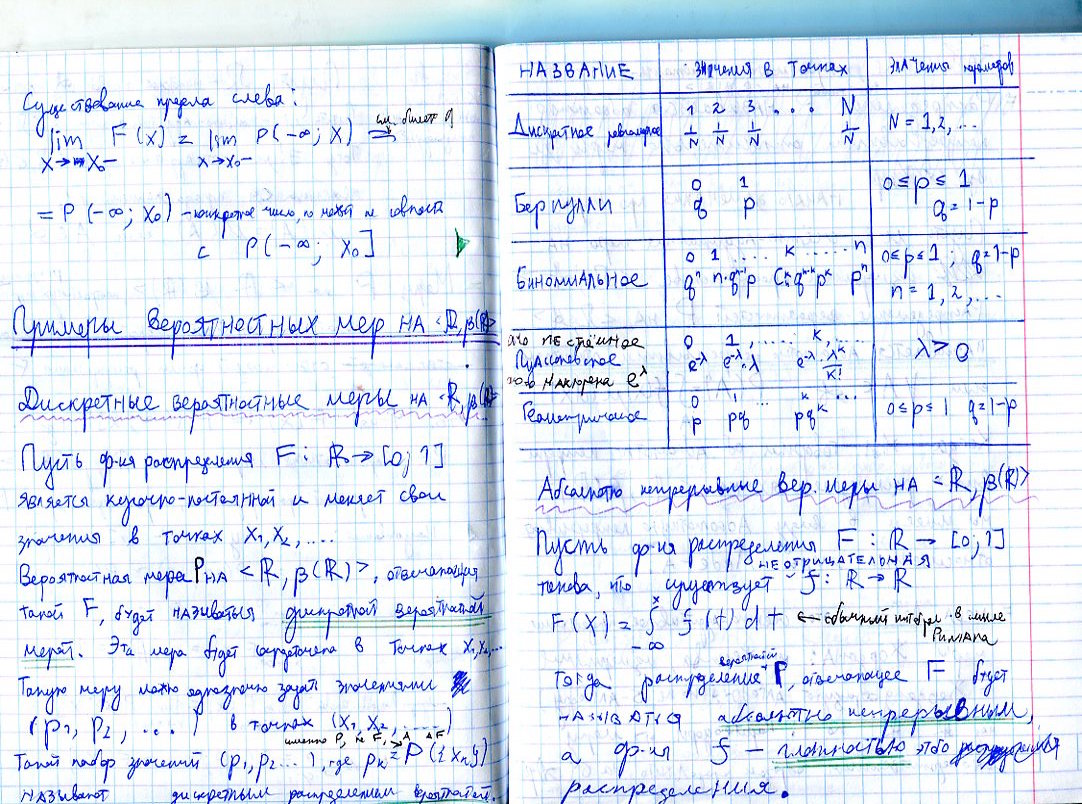 Существование предела слева:
lim F(x) = lim P(-∞; x) = см. билет 9
x→x₀- x→x₀-
= P(-∞; x₀) - конкретное число, но может не совпасть
с P(-∞; x₀]
Примеры вероятностных мер на <ℝ, β(ℝ)>
Дискретные вероятностные меры на <ℝ, β(ℝ)>
Пусть ф-ия распределения F: ℝ → [0; 1]
является кусочно-постоянной и меняет свои
значения в точках x₁, x₂, ....
Вероятностная мера P на <ℝ, β(ℝ)>, отвечающая
такой F, будет называться дискретной вероятностной
мерой. Эта мера будет сосредоточена в точках x₁, x₂, ...
Такую меру можно однозначно задать значениями
(p₁, p₂, ...) в точках (x₁, x₂, ......)
именно P, не F, а ΔF
Такой набор значений (p₁, p₂ ...), где pₖ = P({xₖ})
называют дискретным распределением вероятностей.
НАЗВАНИЕ значения в точках значения параметров
Дискретное равномерное 1 2 3 .... N N = 1, 2, ...
1/N 1/N 1/N 1/N
Бернулли 0 1 0 ≤ p ≤ 1
q p q = 1-p
Биномиальное 0 1 .... k ..... n 0 ≤ p ≤ 1; q = 1-p
qⁿ n·qⁿ⁻¹p Cₙᵏqⁿ⁻ᵏpᵏ pⁿ n = 1, 2, ...
Пуассоновское 0 1, ...... k, .... λ > 0
e^-λ e^-λ·λ e^-λ·λᵏ/k!
Маклорена e^λ
Геометрическое 0 1 ... k ... 0 ≤ p ≤ 1 q = 1-p
p pq pqᵏ
Абсолютно непрерывные вер. меры на <ℝ, β(ℝ)>
Пусть ф-ия распределения F: ℝ → [0; 1]
НЕОТРИЦАТЕЛЬНАЯ
такова, что существует f: ℝ → ℝ
F(x) = ∫_{-∞}^{x} f(t) dt ← обычный интеграл в смысле
Римана
вероятностей
Тогда распределение P, отвечающее F будет
называться абсолютно непрерывным,
а ф-ия f — плотностью этого
распределения.